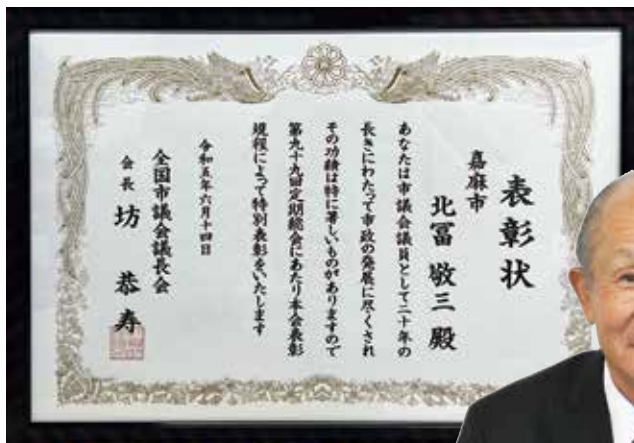 表彰状
嘉麻市
北冨 敬三 殿
あなたは市議会議員として二十年の
長きにわたって市政の発展に尽くされ
その功績は特に著しいものがありますので
第九十九回定期総会にあたり本会表彰
規程によって特別表彰をいたします
令和五年六月十四日
全国市議会議長会
会長 坊 恭寿